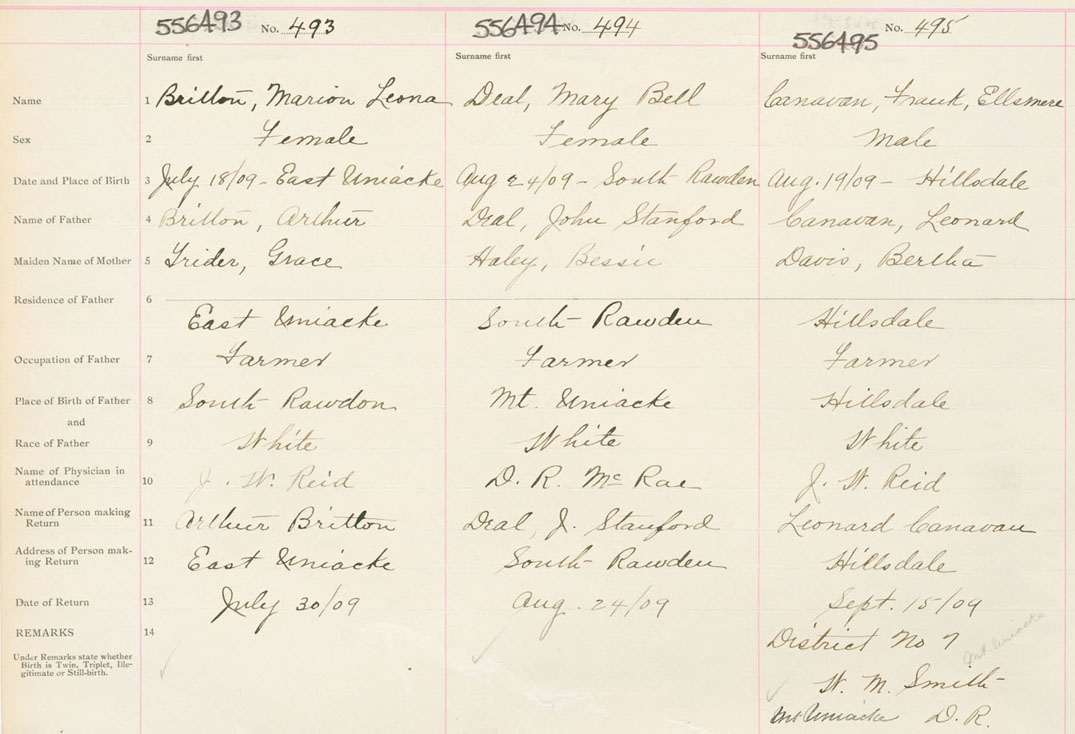 556493 No. 493 556494 No. 494 556495 No. 495
Surname first Surname first Surname first
Name 1 Britton, Marion Leona Deal, Mary Bell Canavan, Frank, Ellsmere
Sex 2 Female Female Male
Date and Place of Birth 3 July 18/09 - East Uniacke Aug 24/09 - South Rawden Aug. 19/09 - Hillsdale
Name of Father 4 Britton, Arthur Deal, John Stanford Canavan, Leonard
Maiden Name of Mother 5 Grider, Grace Haley, Bessie Davis, Bertha
Residence of Father 6
East Uniacke South Rawden Hillsdale
Occupation of Father 7 Farmer Farmer Farmer
Place of Birth of Father 8 South Rawdon Mt. Uniacke Hillsdale
and
Race of Father 9 White White White
Name of Physician in
attendance 10 J. W. Reid D. R. McRae J. W. Reid
Name of Person making
Return 11 Arthur Britton Deal, J. Stanford Leonard Canavan
Address of Person mak-
ing Return 12 East Uniacke South Rawden Hillsdale
Date of Return 13 July 30/09 Aug. 24/09 Sept. 15/09
REMARKS 14 District No 7
Mt Uniacke
Under Remarks state whether
Birth is Twin, Triplet, Ille-
gitimate or Still-birth.
W. M. Smith
Mt Uniacke D. R.